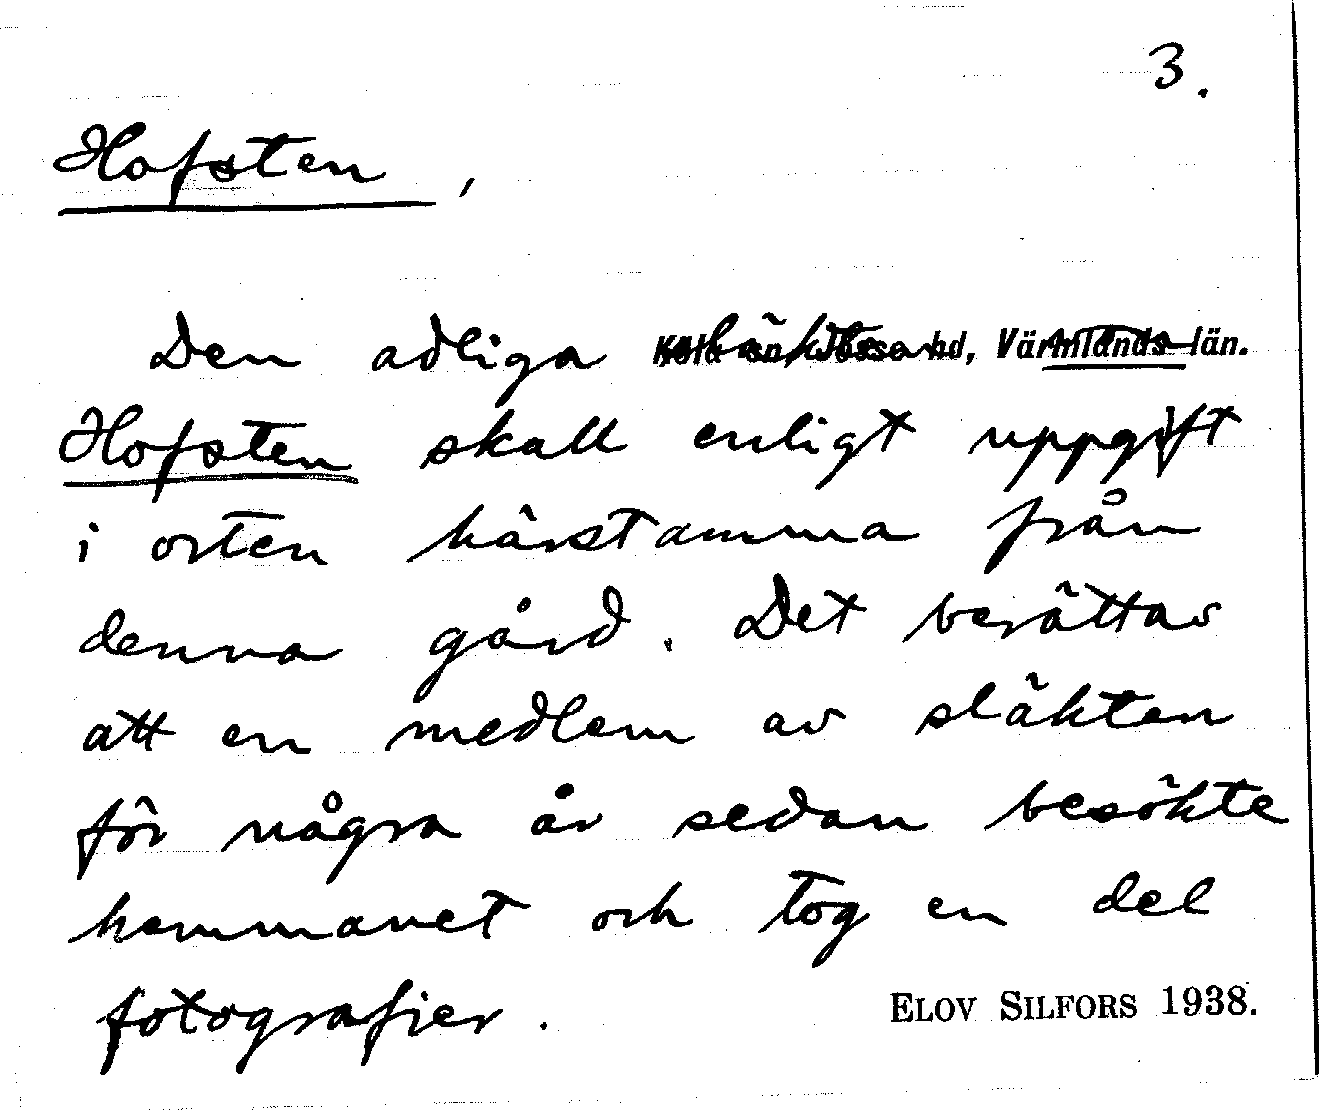 3.
Hofsten,
Köla sn Jösse hd, Värmlands län.
Den adliga släkten von
Hofsten skall enligt uppgift
i orten härstamma från
denna gård. Det berättas
att en medlem av släkten
för några år sedan besökte
hemmanet och tog en del
fotografier.
ELOV SILFORS 1938.